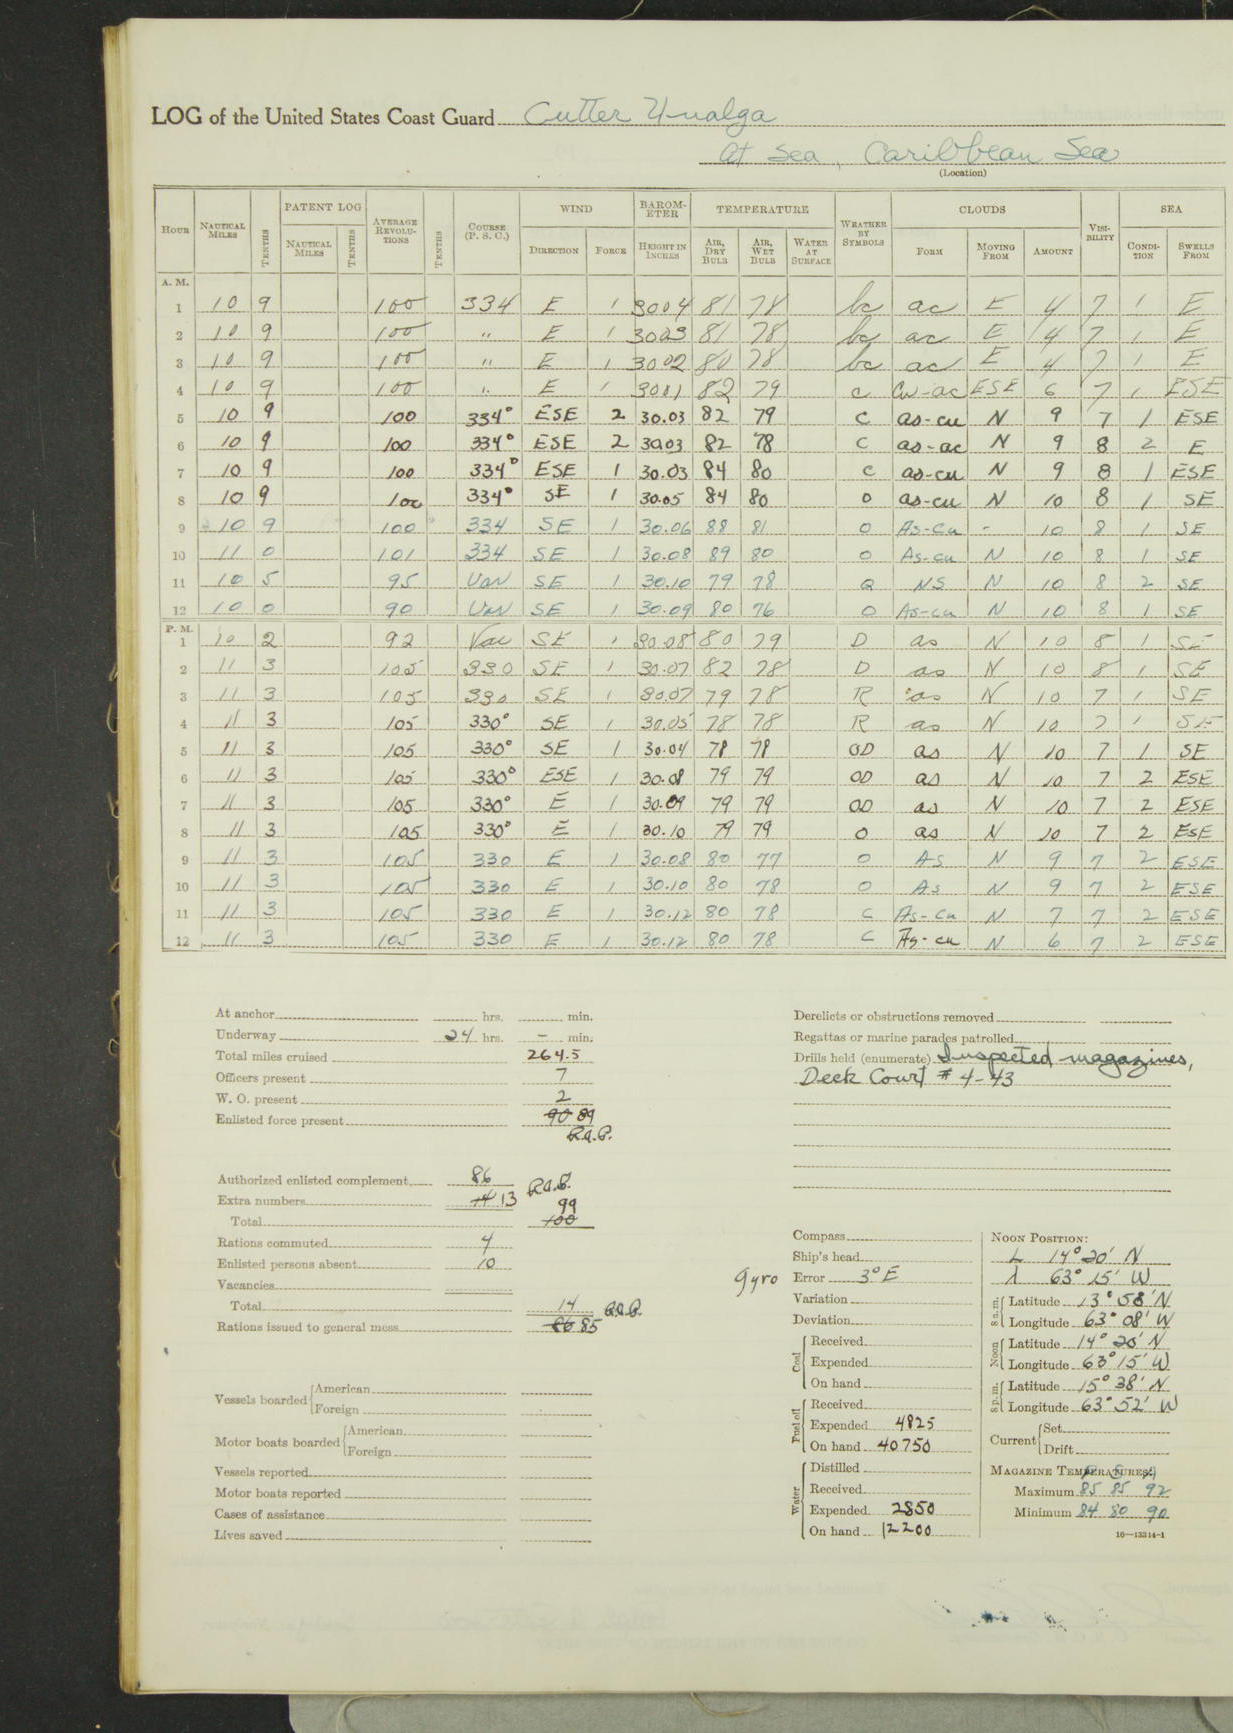 LOG of the United States Coast Guard Cutter Unalga
At Sea, Caribbean Sea
(Location)
HOUR NAUTICAL MILES TENTHS PATENT LOG NAUTICAL MILES TENTHS AVERAGE REVOLUTIONS TENTHS COURSE (P. S. C.) WIND DIRECTION FORCE BAROMETER HEIGHT IN INCHES TEMPERATURE AIR, DRY BULB AIR, WET BULB WATER AT SURFACE WEATHER BY SYMBOLS CLOUDS FORM MOVING FROM AMOUNT VISIBILITY SEA CONDITION SWELLS FROM
A. M.
1 10 9 100 334 E 1 3004 81 78 bc ac E 4 7 1 E
2 10 9 100 " E 1 3003 81 78 bc ac E 4 7 1 E
3 10 9 100 " E 1 3002 80 78 bc ac E 4 7 1 E
4 10 9 100 " E 1 3001 82 79 c Cu-ac ESE 6 7 1 ESE
5 10 9 100 334° ESE 2 30.03 82 79 C as-cu N 9 7 1 ESE
6 10 9 100 334° ESE 2 3003 82 78 C as-ac N 9 8 2 E
7 10 9 100 334° ESE 1 30.03 84 80 C as-cu N 9 8 1 ESE
8 10 9 100 334° SE 1 30.05 84 80 O as-cu N 10 8 1 SE
9 10 9 100 334 SE 1 30.06 88 81 O As-Cu - 10 8 1 SE
10 11 0 101 334 SE 1 30.08 89 80 O As-cu N 10 8 1 SE
11 10 5 95 Var SE 1 30.10 79 78 Q NS N 10 8 2 SE
12 10 0 90 Var SE 1 30.09 80 76 O As-cu N 10 8 1 SE
P. M.
1 10 2 92 Var SE 1 30.08 80 79 D as N 10 8 1 SE
2 11 3 105 330 SE 1 30.07 82 78 D as N 10 8 1 SE
3 11 3 105 330 SE 1 30.07 79 78 R as N 10 7 1 SE
4 11 3 105 330° SE 1 30.05 78 78 R as N 10 7 1 SE
5 11 3 105 330° SE 1 30.04 78 78 OD as N 10 7 1 SE
6 11 3 105 330° ESE 1 30.08 79 79 OD as N 10 7 2 ESE
7 11 3 105 330° E 1 30.09 79 79 OD as N 10 7 2 ESE
8 11 3 105 330° E 1 30.10 79 79 O as N 10 7 2 ESE
9 11 3 105 330 E 1 30.08 80 77 O As N 9 7 2 ESE
10 11 3 105 330 E 1 30.10 80 78 O As N 9 7 2 ESE
11 11 3 105 330 E 1 30.12 80 78 C As-Cu N 7 7 2 ESE
12 11 3 105 330 E 1 30.12 80 78 C As-cu N 6 7 2 ESE
At anchor hrs. min.
Underway 24 hrs. – min.
Total miles cruised 264.5
Officers present 7
W. O. present 2
Enlisted force present 90 89
R.A.P.
Authorized enlisted complement 86
Extra numbers 14 13 R.A.P.
99
Total 100
Rations commuted 4
Enlisted persons absent 10
Vacancies
Total 14 R.A.P.
Rations issued to general mess 86 85
Vessels boarded American
Foreign
Motor boats boarded American
Foreign
Vessels reported
Motor boats reported
Cases of assistance
Lives saved
Derelicts or obstructions removed
Regattas or marine parades patrolled
Drills held (enumerate) Inspected magazines,
Deck Court # 4-43
Compass
Ship's head
Gyro Error 3° E
Variation
Deviation
Coal Received
Expended
On hand
Fuel oil Received
Expended 4825
On hand 40750
Water Distilled
Received
Expended 2850
On hand 12200
NOON POSITION:
L 14° 20' N
λ 63° 15' W
8 a.m. Latitude 13° 58' N
Longitude 63° 08' W
Noon Latitude 14° 20' N
Longitude 63° 15' W
8 p.m. Latitude 15° 38' N
Longitude 63° 52' W
Current Set
Drift
MAGAZINE TEMPERATURES:
Maximum 85 85 92
Minimum 84 80 90
16—13314-1